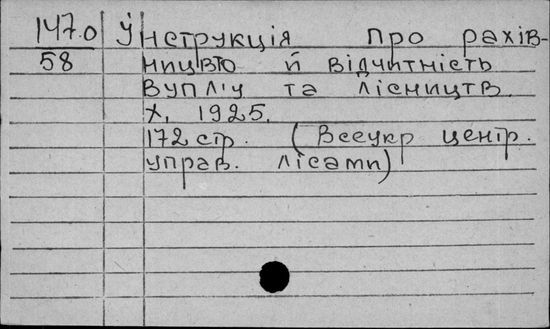 147.0 Ӱнструкція про рахів-
58 ництво й відчитність
Вупл'у та лісництв.
Х. 1925.
172 стр. (Всеукр центр.
управ. лісами)